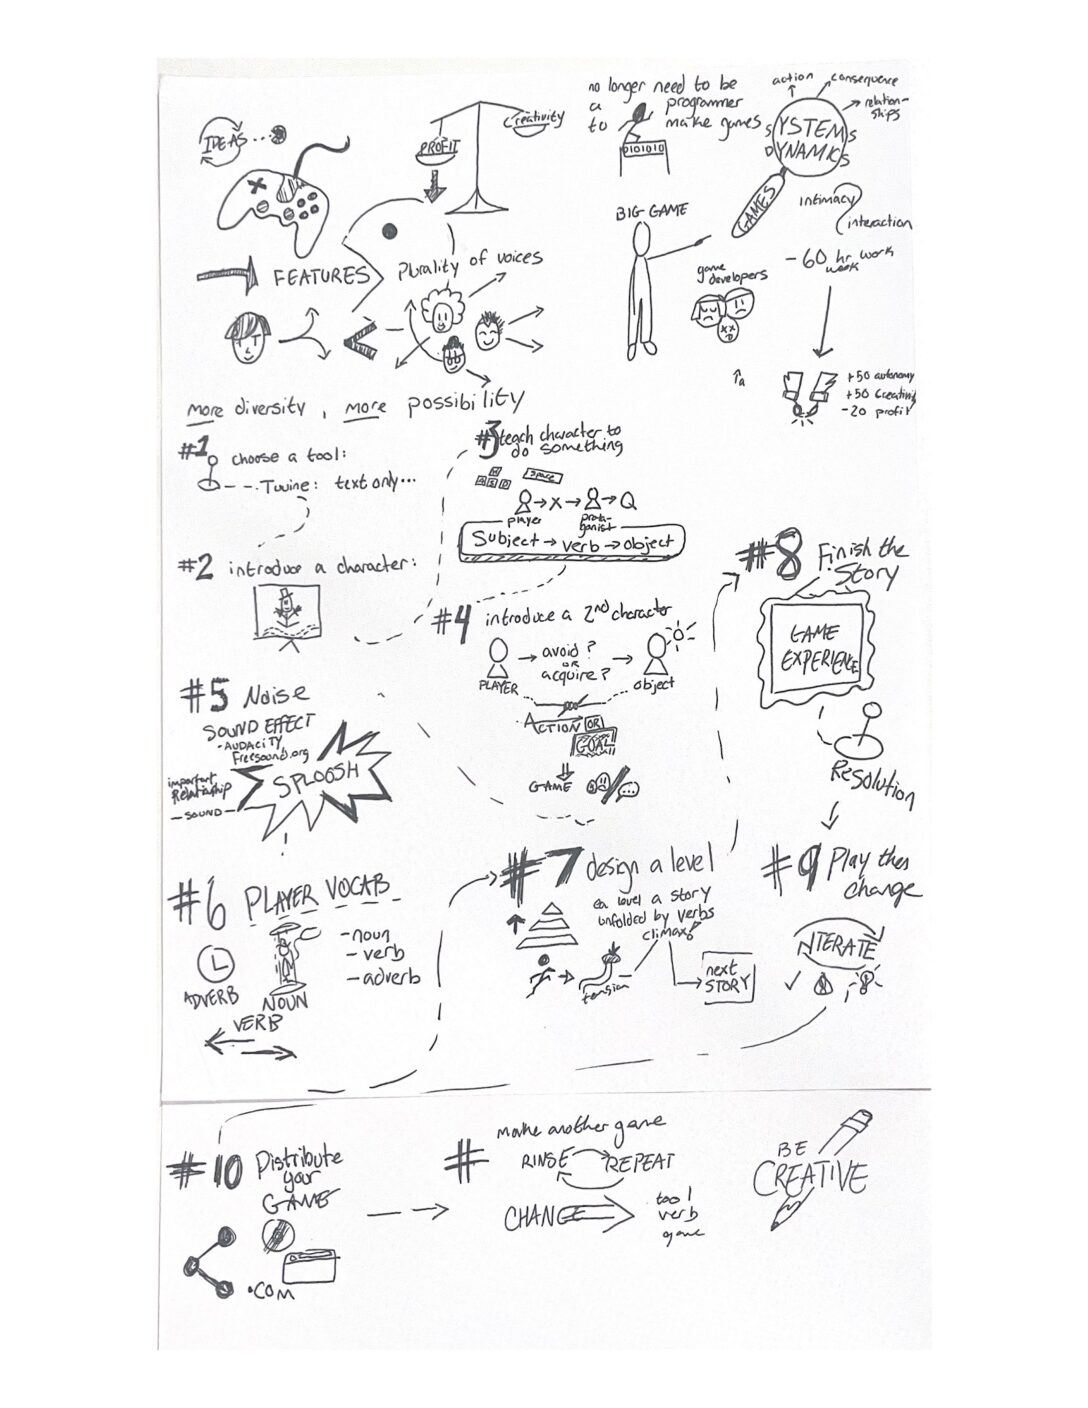 IDEAS
PROFIT
creativity
FEATURES
Plurality of voices
more diversity, more possibility
no longer need to be
a programmer
to make games
010101
action
consequence
relation-
ships
SYSTEMS
DYNAMICS
GAMES
intimacy
interaction
BIG GAME
game
developers
-60 hr work
week
+50 autonomy
+50 creativity
-20 profit
#1
choose a tool:
Twine: text only...
#2 introduce a character:
#3 teach character to
do something
W
A S D
space
X
Q
player
prota-
gonist
Subject → verb → object
#4 introduce a 2nd character
avoid?
OR
acquire?
PLAYER
object
ACTION OR
GOAL
GAME
#5 Noise
SOUND EFFECT
- AUDACITY
Freesound.org
important
Relationship
- SOUND -
SPLOOSH
#6 PLAYER VOCAB
- noun
- verb
- adverb
ADVERB
NOUN
VERB
#7 design a level
ea level a story
unfolded by verbs
climax
tension
next
STORY
#8 Finish the
Story
GAME
EXPERIENCE
Resolution
#9 Play then
change
ITERATE
#10 Distribute
your
GAME
.COM
#
make another game
RINSE REPEAT
CHANGE
tool
verb
game
BE
CREATIVE